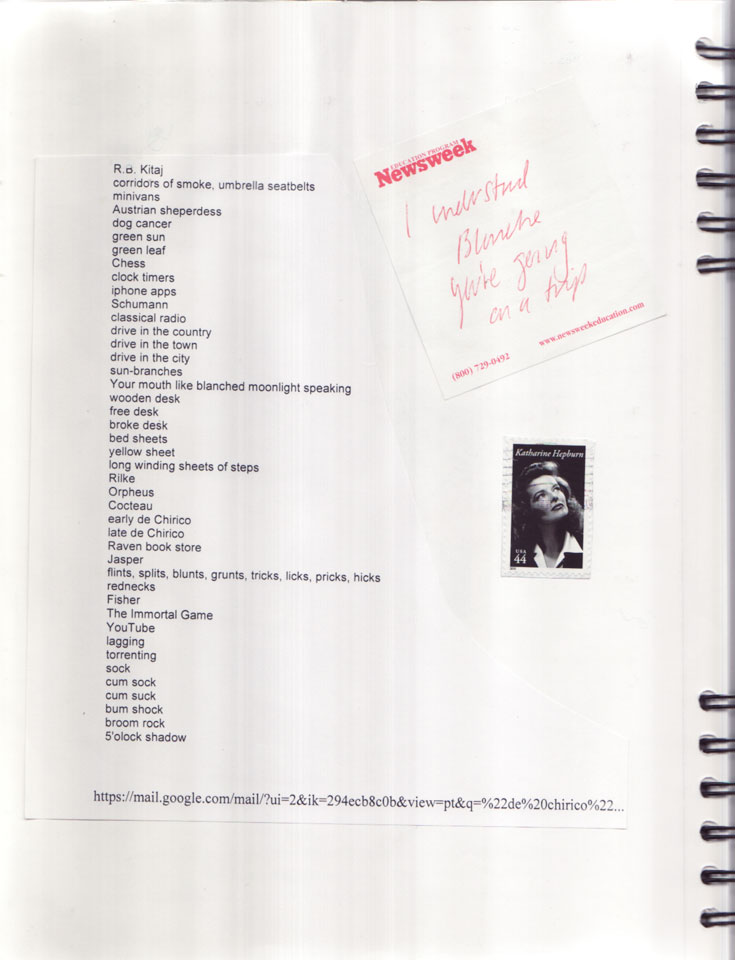 R.B. Kitaj
corridors of smoke, umbrella seatbelts
minivans
Austrian sheperdess
dog cancer
green sun
green leaf
Chess
clock timers
iphone apps
Schumann
classical radio
drive in the country
drive in the town
drive in the city
sun-branches
Your mouth like blanched moonlight speaking
wooden desk
free desk
broke desk
bed sheets
yellow sheet
long winding sheets of steps
Rilke
Orpheus
Cocteau
early de Chirico
late de Chirico
Raven book store
Jasper
flints, splits, blunts, grunts, tricks, licks, pricks, hicks
rednecks
Fisher
The Immortal Game
YouTube
lagging
torrenting
sock
cum sock
cum suck
bum shock
broom rock
5'olock shadow
https://mail.google.com/mail/?ui=2&ik=294ecb8c0b&view=pt&q=%22de%20chirico%22...
EDUCATION PROGRAM
Newsweek
I understand
Blanche
you're going
on a trip
www.newsweekeducation.com
(800) 729-0492
Katharine Hepburn
USA
44